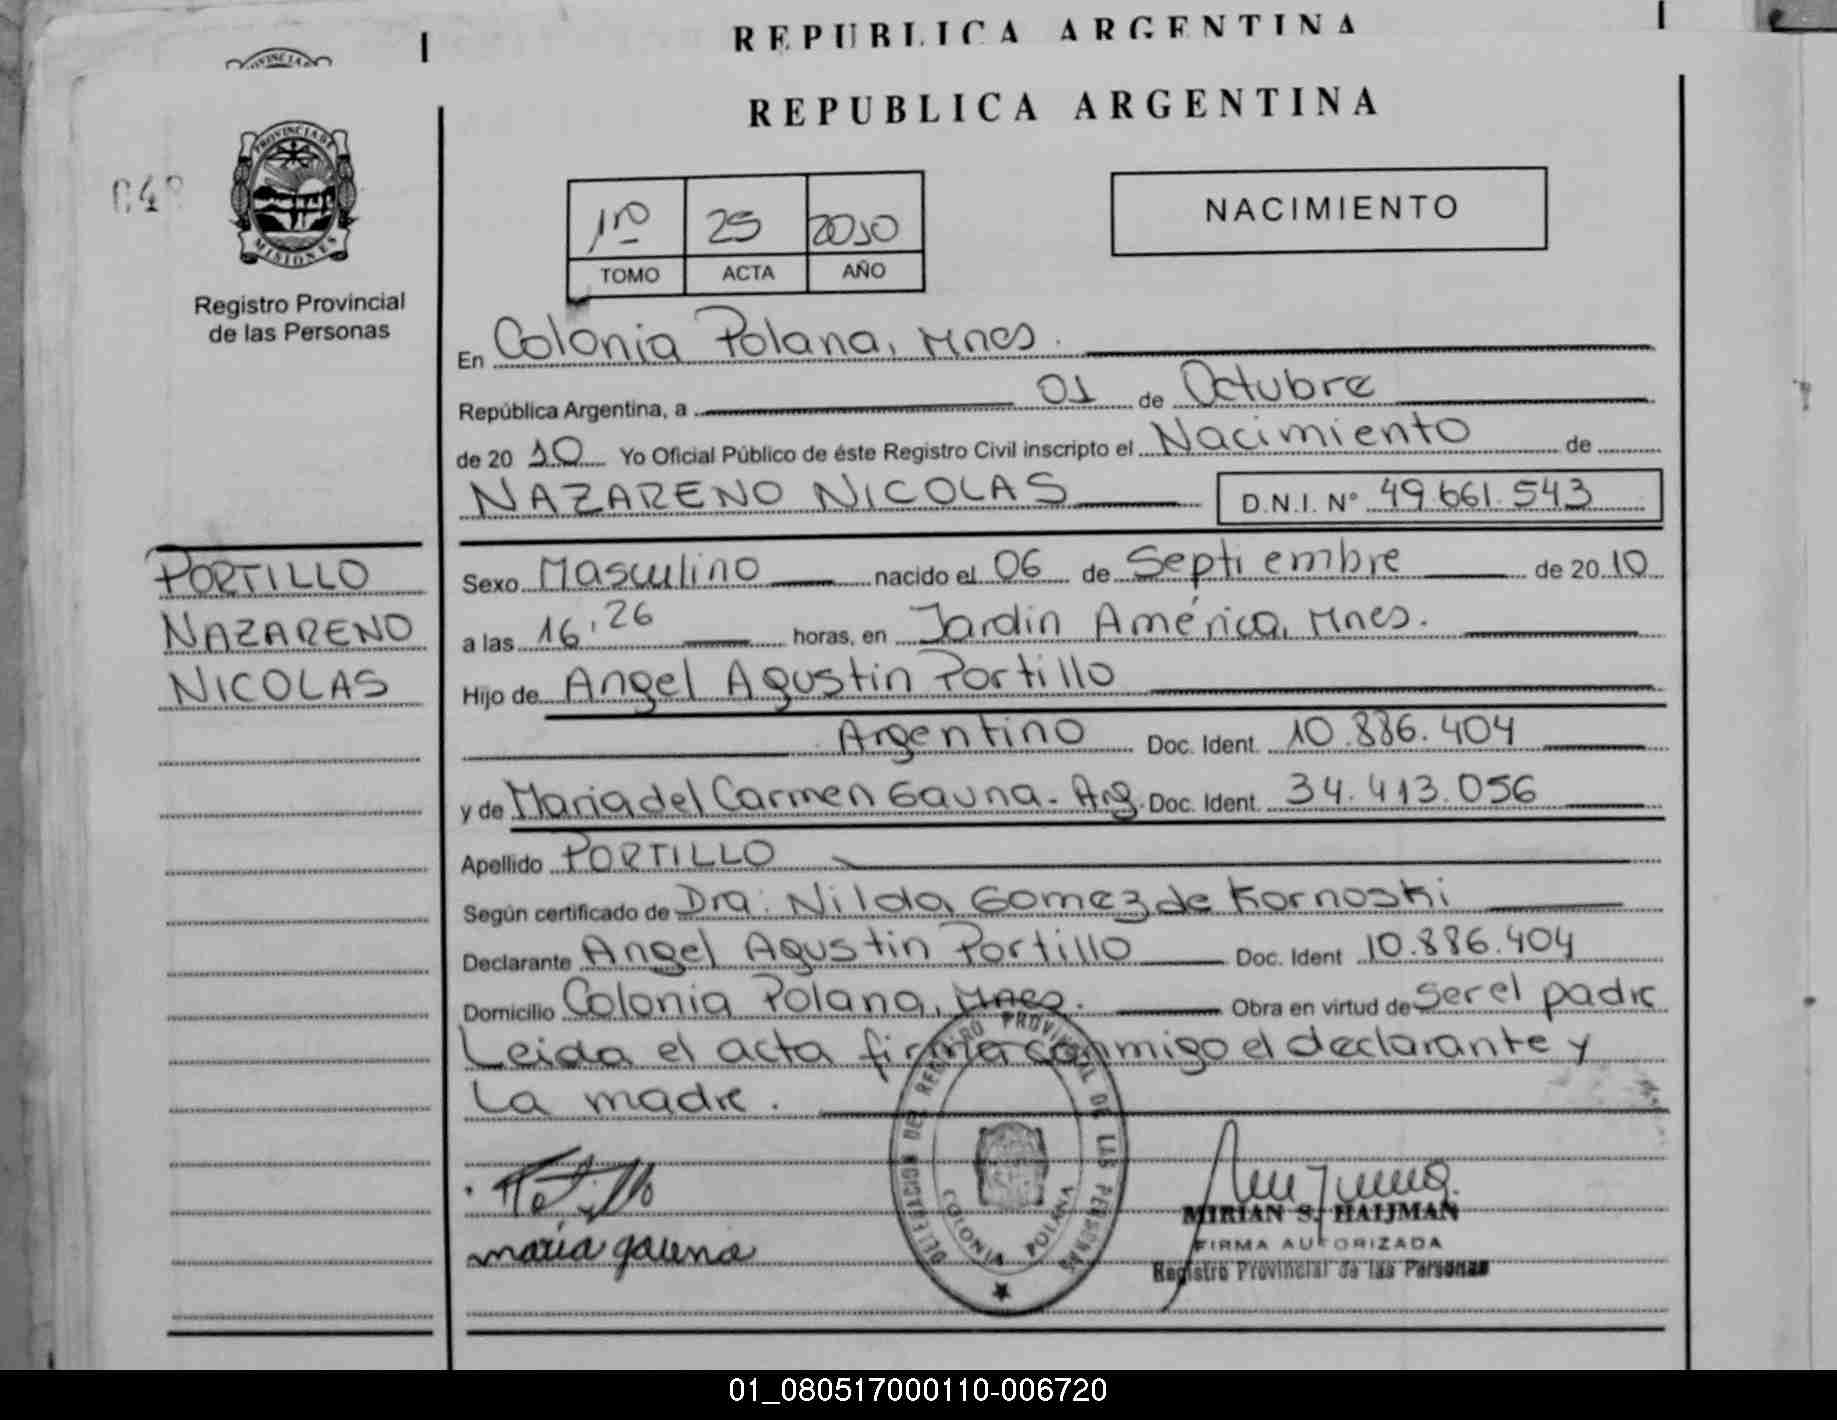 REPUBLICA ARGENTINA
REPUBLICA ARGENTINA
PROVINCIA DE
MISIONES
Registro Provincial
de las Personas
1ro 25 2010
TOMO ACTA AÑO
NACIMIENTO
En Colonia Polana, Mnes.
República Argentina, a 01 de Octubre
de 2010 Yo Oficial Público de éste Registro Civil inscripto el Nacimiento de
NAZARENO NICOLAS D.N.I. N° 49.661.543
PORTILLO
NAZARENO
NICOLAS
Sexo Masculino nacido el 06 de Septiembre de 2010
a las 16,26 horas, en Jardin América, Mnes.
Hijo de Angel Agustin Portillo
Argentino Doc. Ident. 10.886.404
y de Maria del Carmen Gauna - Arg. Doc. Ident. 34.413.056
Apellido PORTILLO
Según certificado de Dra: Nilda Gomez de Kornoski
Declarante Angel Agustin Portillo Doc. Ident 10.886.404
Domicilio Colonia Polana, Mnes. Obra en virtud de ser el padre
Leida el acta firma conmigo el declarante y
la madre.
DELEGACION DEL REGISTRO PROVINCIAL DE LAS PERSONAS
COLONIA POLANA
Portillo
maria gauna
MIRIAN S. HAIJMAN
FIRMA AUTORIZADA
Registro Provincial de las Personas
01_080517000110-006720